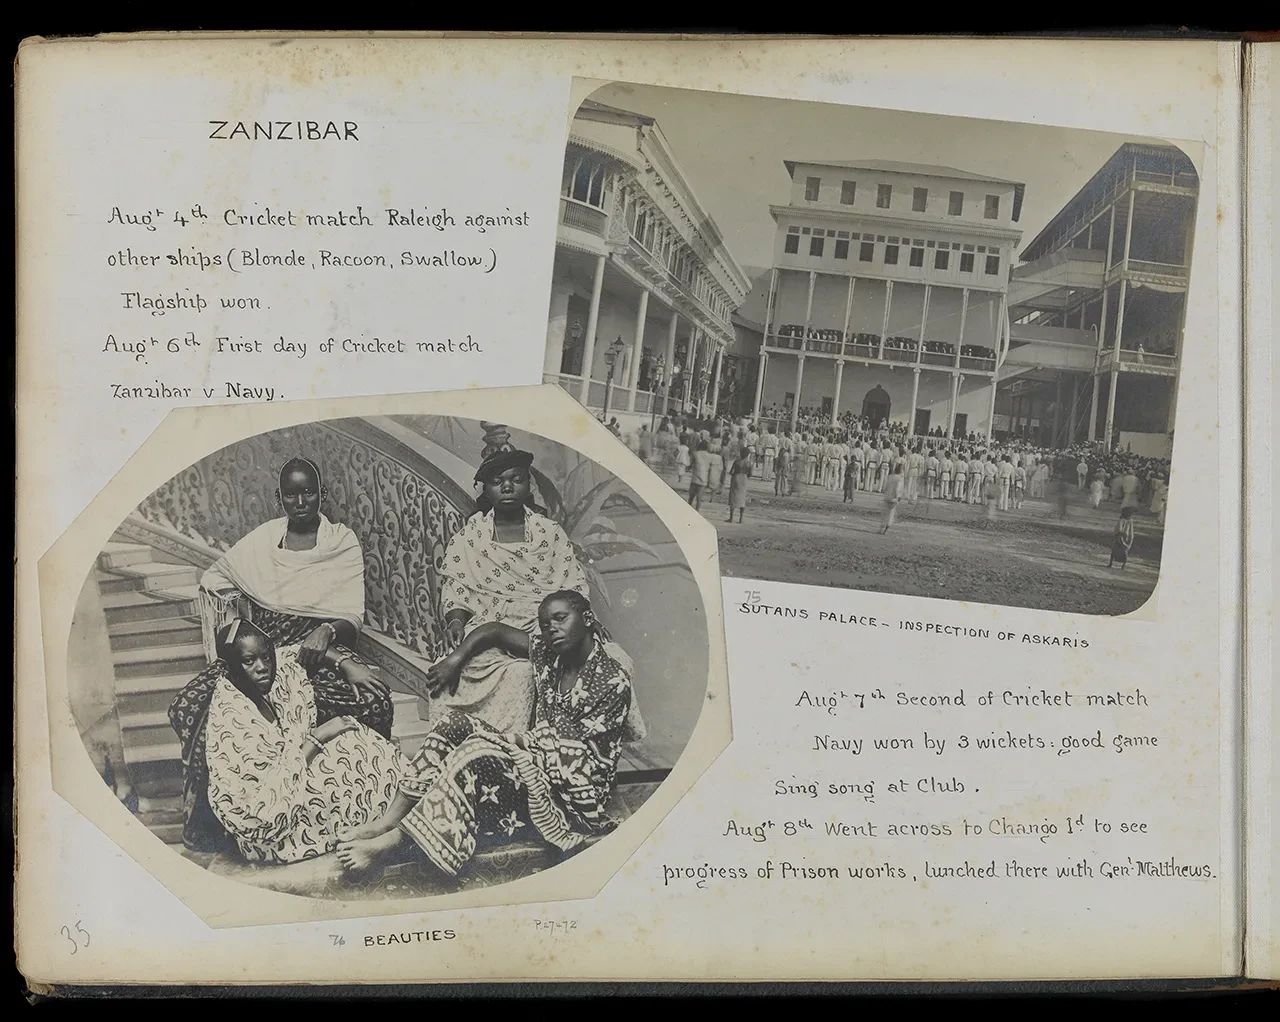 ZANZIBAR
Augt 4th Cricket match Raleigh against
other ships (Blonde, Racoon, Swallow.)
Flagship won.
Augt 6th First day of Cricket match
Zanzibar v Navy.
75
SUTANS PALACE - INSPECTION OF ASKARIS
Augt 7th Second of Cricket match
Navy won by 3 wickets: good game
Sing song at Club.
Augt 8th Went across to Chango Id to see
progress of Prison works, lunched there with Genl Matthews.
76 BEAUTIES
35